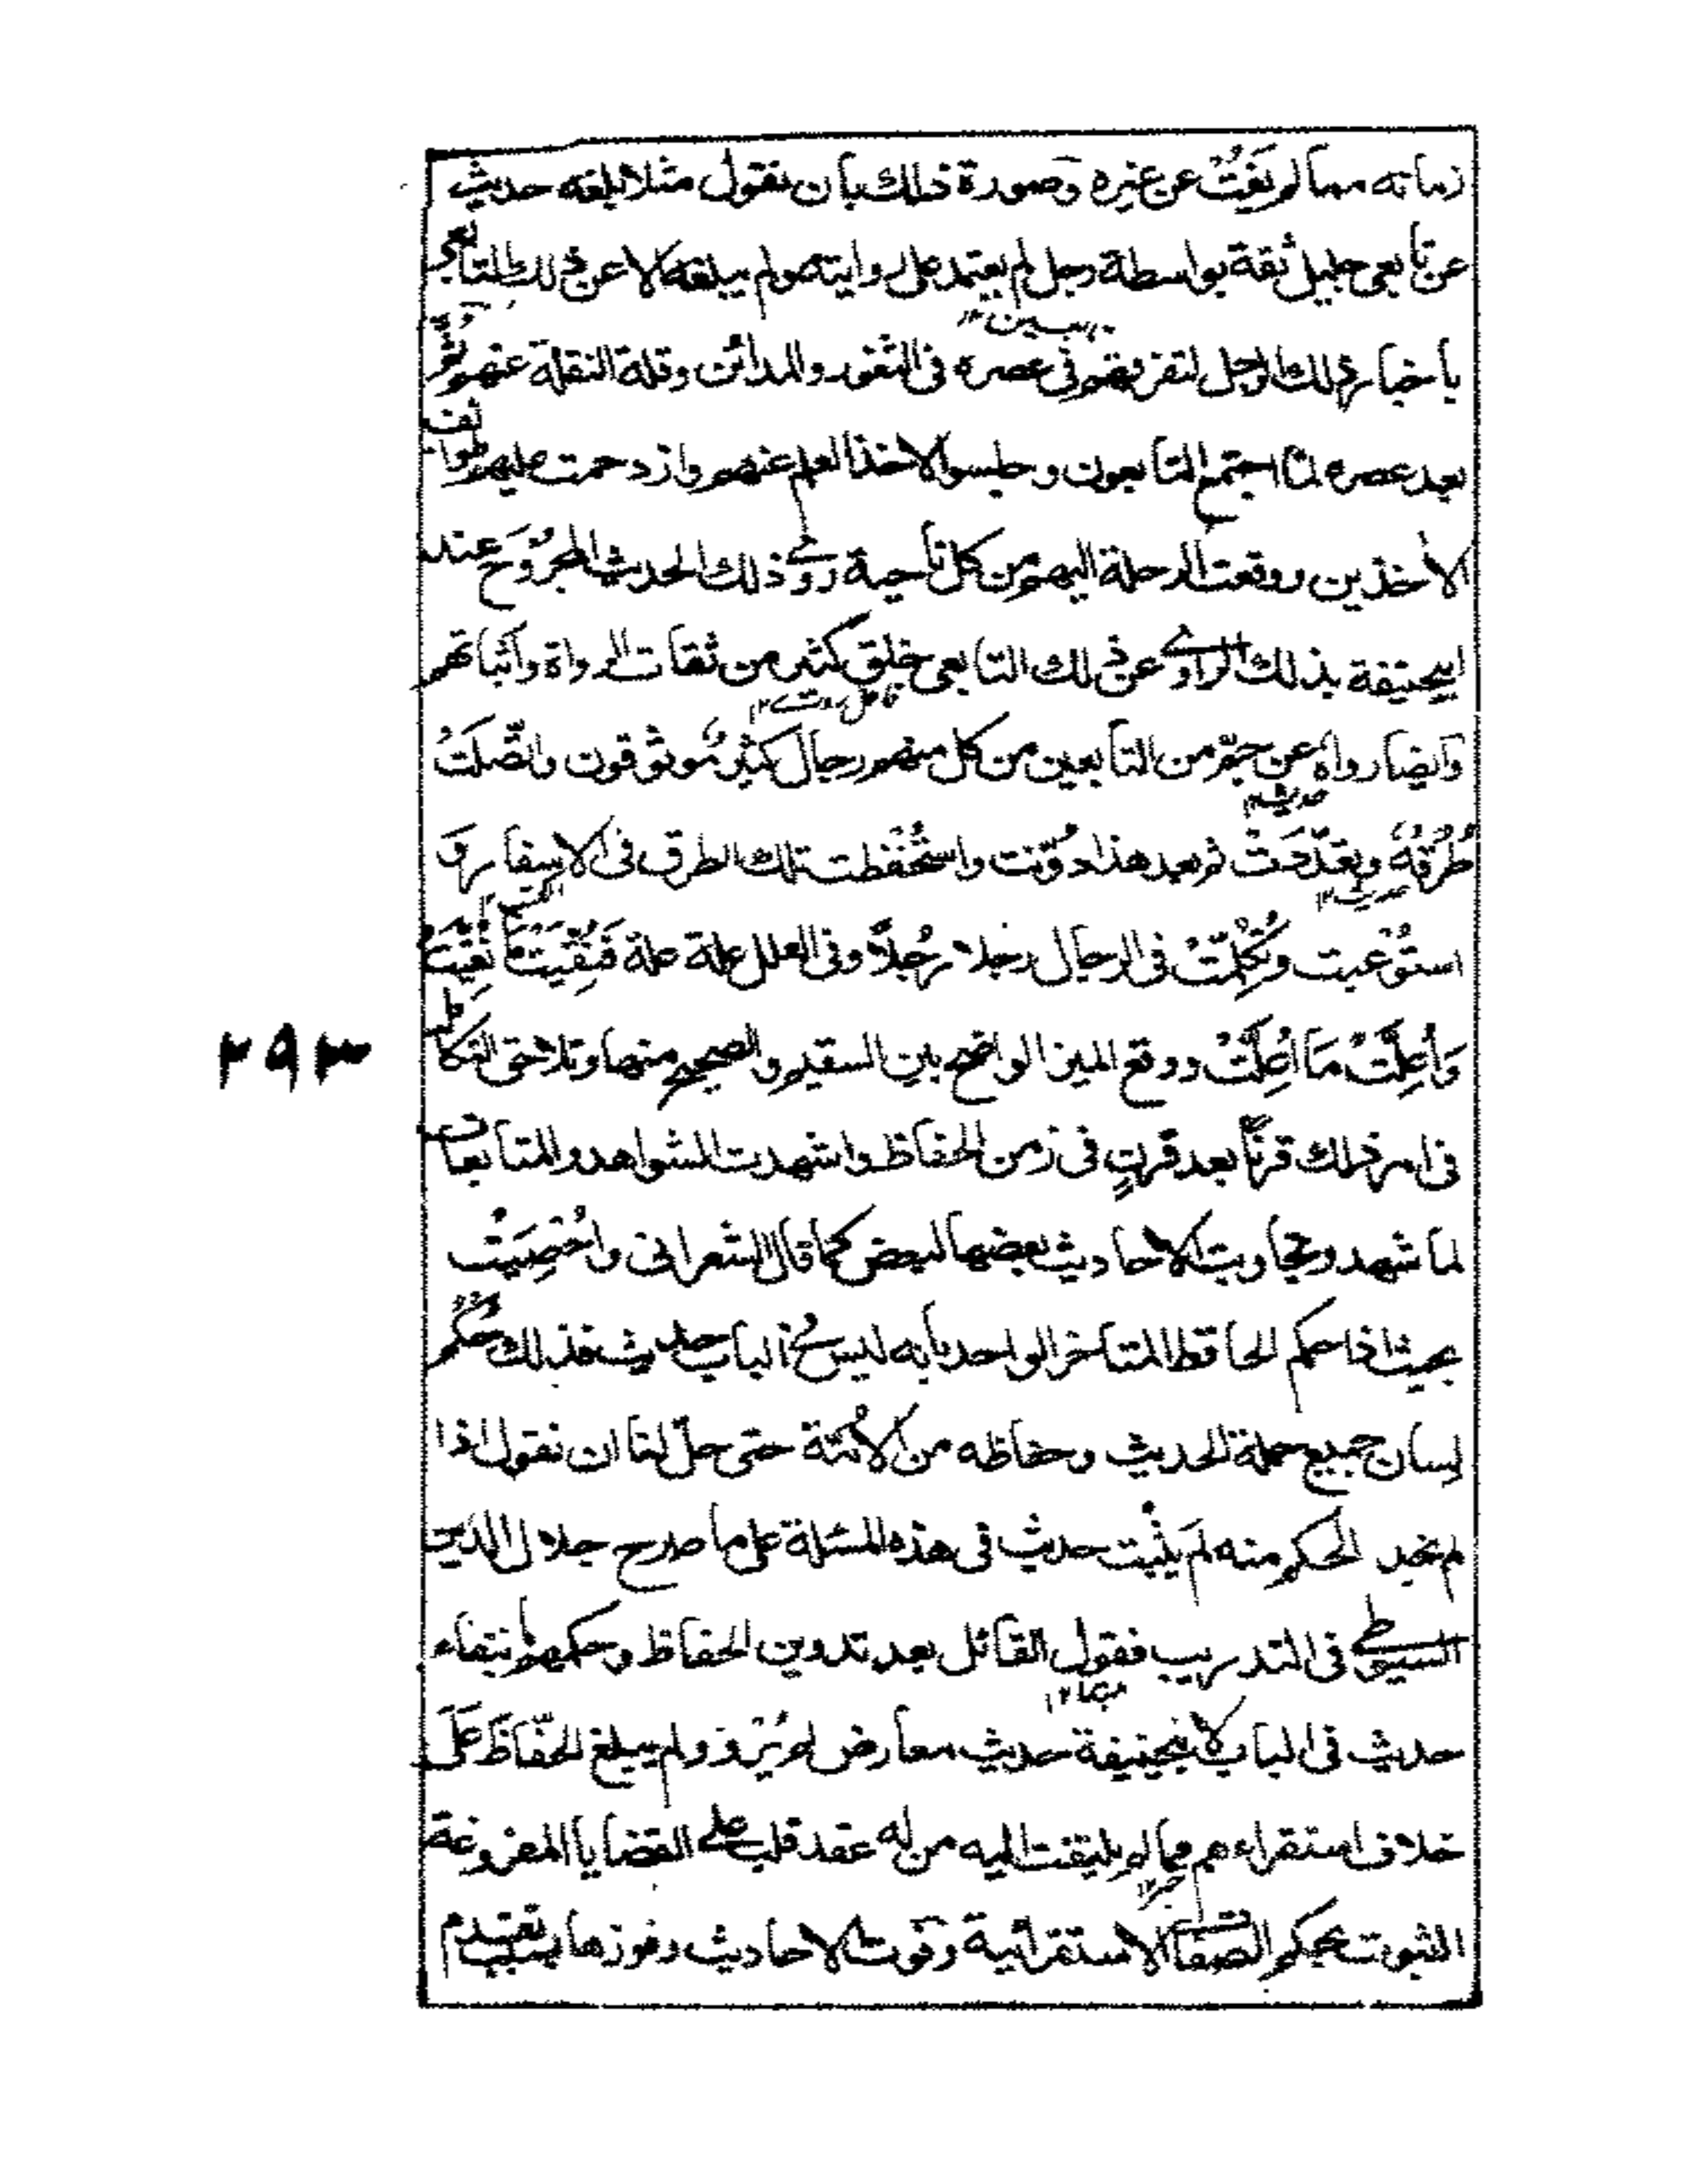 زمانه مما لم يَفُتْ عن غيره وصورة ذلك بان نقول مثلا بلغه حديث
عن تابعى جليل ثقة بواسطة رجل لم يعتمد على روايته ولم يبلغه الا عن ذلك التابعى
باخبار ذلك الرجل لتفرقهم فى عصره فى الثغور والمدائن وقلة النقلة عنهم ثُمَّ
بعد عصره لما اجتمع التابعون وجلسوا لاخذ العلم عنهم وازدحمت عليهم طوائف
الاخذين ووقعت الرحلة اليهم من كل ناحية روى ذلك الحديث المجروح عند
ابيحنيفة بذلك الراوى عن ذلك التابعى خلق كثير من ثقات الرواة واثباتهم
وايضا رواه عن جمّ من التابعين من كل منهم رجال كثير موثوقون واتّصلَتْ
طُرُقُهُ وتعدّدَتْ ثم بعد هذا دُوّنت واستُحْفظت تلك الطرق فى الاسفار وَ
استُوْعبت وتُكُلِّمَتْ فى الرجال رجلا رجُلاً وفى العلل علة علة فَنُقِّيَتْ مَا نُقِّيَتْ
وَأُعِلَّتْ مَا أُعِلَّتْ ووقع الميز الواضح بين السقيم والصحيح منها وتلاحق
٢٩٣
فى امر ذلك قرناً بعد قرنٍ فى زمن الحفاظ واشهدت الشواهد والمتابعات
لما شهد وتجاوبت الاحاديث بعضها لبعض كما قال الشعرانى وأُحْصِيَتْ
بحيث اذا حكم الحافظ المتاخر الواحد بانه ليس فى الباب حديث فذلك حُكْمُ
لسان جميع حملة الحديث وحفاظه من الائمة حتى حلّ لنا ان نقول اذا
لم نجد الحكم منه لم يَثْبت حديث فى هذه المسئلة على ما صرح جلال الدين
السيوطى فى التدريب فقول القائل بعد تدوين الحفاظ وحكمهم بانتفاء
حديث فى الباب لابيحنيفة حديث معارض لم يُرْوَ ولم يبلغ الحفّاظ عَلَى
خلاف استقراءهم مما لم يلتفت اليه من له عقد قلب على القضايا المفروغة
الثبوت بحكم الصفات الاستقرائية وفوت الاحاديث وفوزها بسبب تقدم